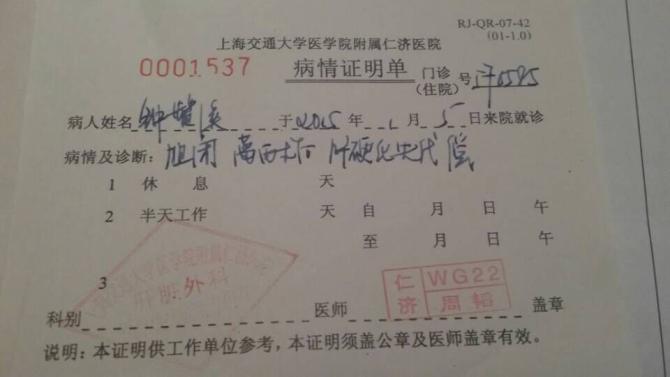 RJ-QR-07-42
(01-1.0)
上海交通大学医学院附属仁济医院
0001537 病情证明单 门诊(住院)号
病人姓名 于2015年1月5日来院就诊
病情及诊断：胆闭 葛西术后 肝硬化失代偿
1 休息 天
2 半天工作 天 自 月 日 午
至 月 日 午
3
肝脏外科
仁济 WG22 周韬
科别 医师 盖章
说明：本证明供工作单位参考，本证明须盖公章及医师盖章有效。